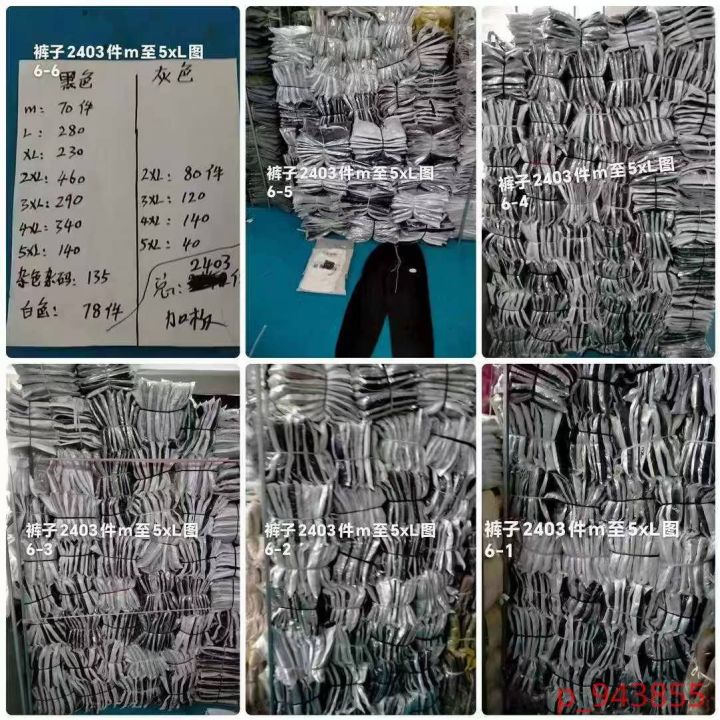 裤子2403件m至5xL图
6-6
黑色
灰色
m: 70件
L: 280
XL: 230
2XL: 460
2XL: 80件
3XL: 290
3XL: 120
4XL: 340
4XL: 140
5XL: 140
5XL: 40
杂色杂码: 135
总: 2403件
白色: 78件
加粉
裤子2403件m至5xL图
6-5
裤子2403件m至5xL图
6-4
裤子2403件m至5xL图
6-3
裤子2403件m至5xL图
6-2
裤子2403件m至5xL图
6-1
p_943855